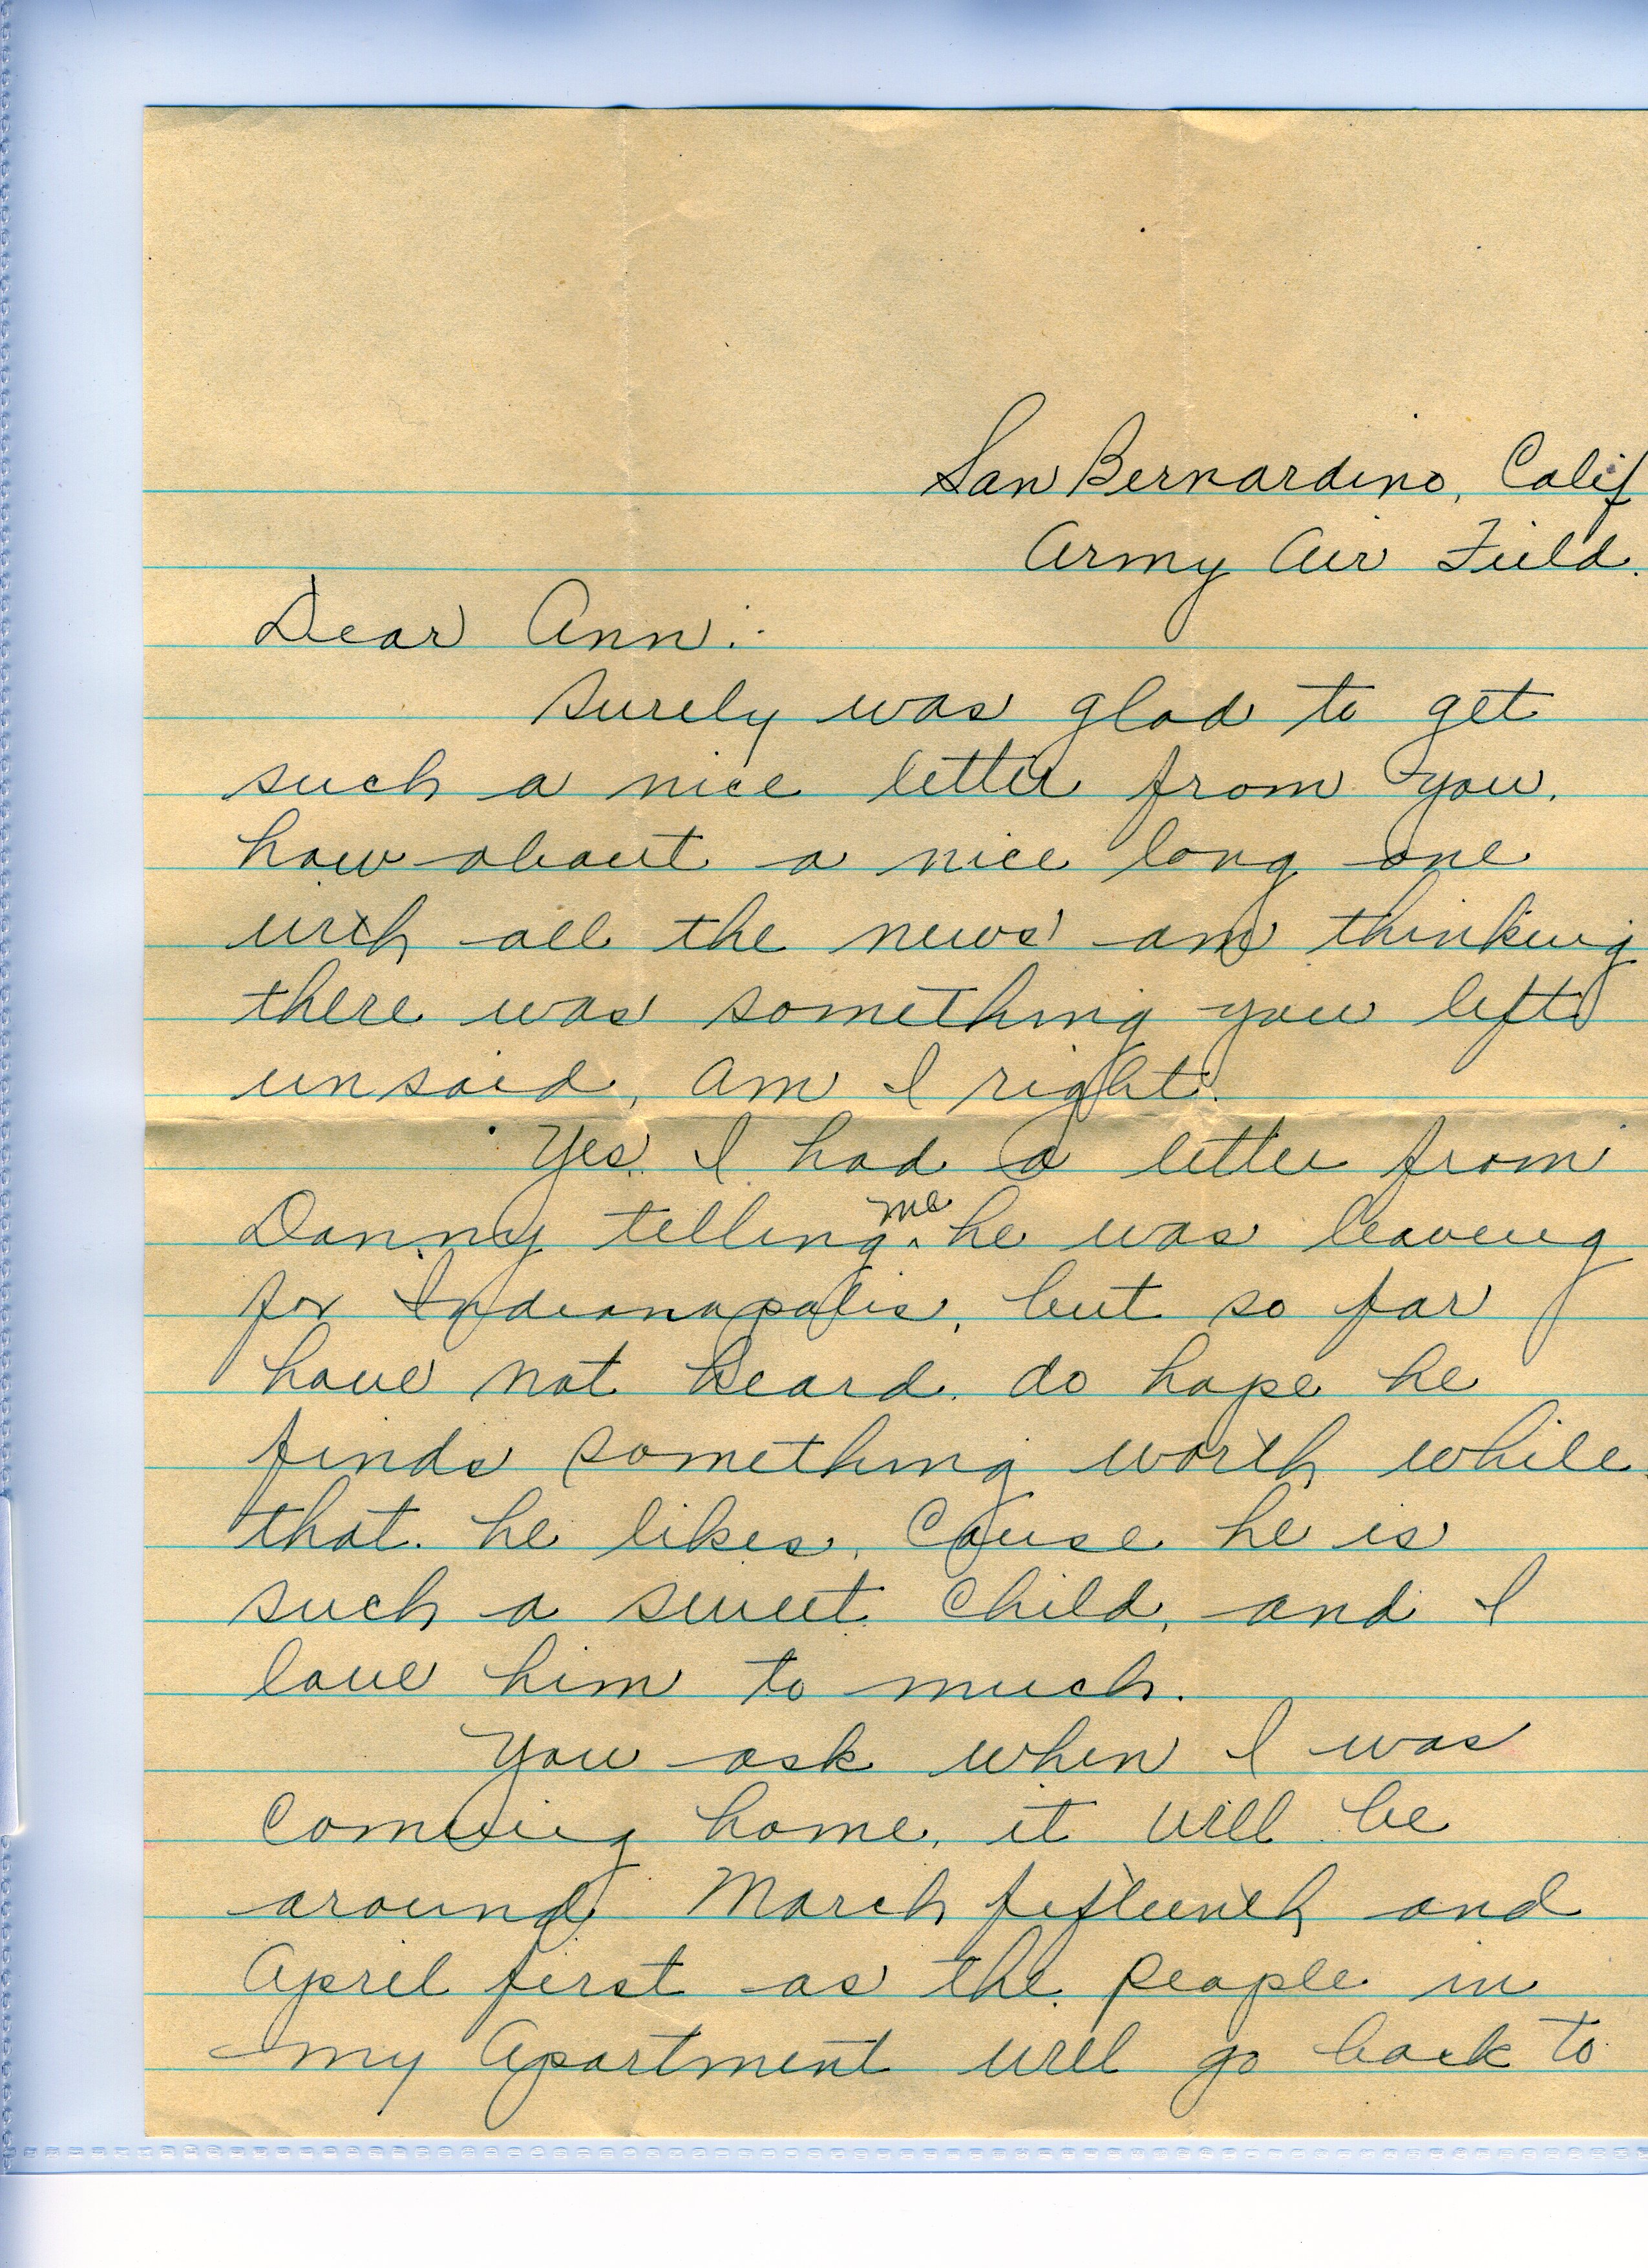 San Bernardino, Calif
Army Air Field.
Dear Ann:
Surely was glad to get
such a nice letter from you.
how about a nice long one
with all the news' am thinking
there was something you left
unsaid, am I right.
Yes. I had a letter from
Danny telling me he was leaving
for Indianapolis, but so far
have not heard. do hope he
finds something worth while
that he likes, Cause he is
such a sweet child, and I
love him to much.
You ask when I was
coming home, it will be
around March fifteenth and
April first as the people in
my Apartment will go back to